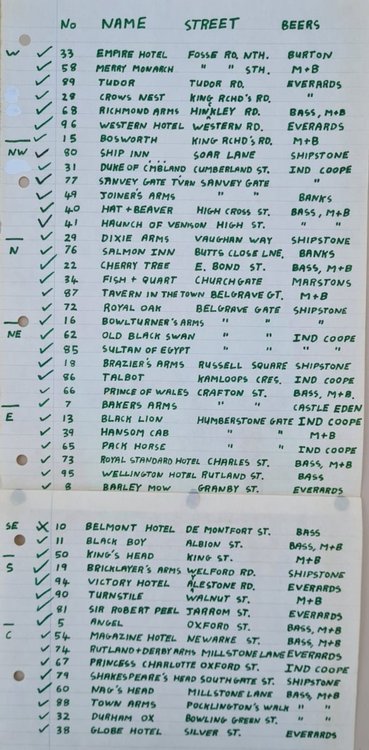 No NAME STREET BEERS
W ✓ 33 EMPIRE HOTEL FOSSE RD. NTH. BURTON
✓ 58 MERRY MONARCH " " STH. M+B
✓ 89 TUDOR TUDOR RD. EVERARDS
✓ 28 CROWS NEST KING RCHD'S RD. "
✓ 68 RICHMOND ARMS HINKLEY RD. BASS, M+B
✓ 96 WESTERN HOTEL WESTERN RD. EVERARDS
✓ 15 BOSWORTH KING RCHD'S RD. M+B
NW ✓ 80 SHIP INN SOAR LANE SHIPSTONE
✓ 31 DUKE OF C...MBLAND CUMBERLAND ST. IND COOPE
✓ 77 SANVEY GATE TVRN SANVEY GATE "
✓ 49 JOINER'S ARMS " " BANKS
✓ 40 HAT + BEAVER HIGH CROSS ST. BASS, M+B
✓ 41 HAUNCH OF VENISON HIGH ST. " "
✓ 29 DIXIE ARMS VAUGHAN WAY SHIPSTONE
N ✓ 76 SALMON INN BUTTS CLOSE LNE. BANKS
✓ 22 CHERRY TREE E. BOND ST. BASS, M+B
✓ 34 FISH + QUART CHURCHGATE MARSTONS
✓ 87 TAVERN IN THE TOWN BELGRAVE GT. M+B
✓ 72 ROYAL OAK BELGRAVE GATE SHIPSTONE
✓ 16 BOWLTURNER'S ARMS " " "
NE ✓ 62 OLD BLACK SWAN " " IND COOPE
✓ 85 SULTAN OF EGYPT " " " "
✓ 18 BRAZIER'S ARMS RUSSELL SQUARE SHIPSTONE
✓ 86 TALBOT KAMLOOPS CRES. IND COOPE
✓ 66 PRINCE OF WALES CRAFTON ST. BASS, M+B.
✓ 7 BAKERS ARMS " " CASTLE EDEN
E ✓ 13 BLACK LION HUMBERSTONE GATE IND COOPE
✓ 39 HANSOM CAB " " M+B
✓ 65 PACK HORSE " " IND COOPE
✓ 73 ROYAL STANDARD HOTEL CHARLES ST. BASS, M+B
✓ 95 WELLINGTON HOTEL RUTLAND ST. BASS
✓ 8 BARLEY MOW GRANBY ST. EVERARDS
SE X 10 BELMONT HOTEL DE MONTFORT ST. BASS
✓ 11 BLACK BOY ALBION ST. BASS, M+B
✓ 50 KING'S HEAD KING ST. M+B
S ✓ 19 BRICKLAYER'S ARMS WELFORD RD. SHIPSTONE
✓ 94 VICTORY HOTEL AYLESTONE RD. EVERARDS
✓ 90 TURNSTILE WALNUT ST. M+B
✓ 81 SIR ROBERT PEEL JARROM ST. EVERARDS
✓ 5 ANGEL OXFORD ST. BASS, M+B
C ✓ 54 MAGAZINE HOTEL NEWARKE ST. BASS, M+B
✓ 74 RUTLAND+DERBY ARMS MILLSTONE LANE EVERARDS
✓ 67 PRINCESS CHARLOTTE OXFORD ST. IND COOPE
✓ 79 SHAKESPEARE'S HEAD SOUTHGATE ST. SHIPSTONE
✓ 60 NAG'S HEAD MILLSTONE LANE BASS, M+B
✓ 88 TOWN ARMS POCKLINGTON'S WALK " "
✓ 32 DURHAM OX BOWLING GREEN ST. " "
✓ 38 GLOBE HOTEL SILVER ST. EVERARDS